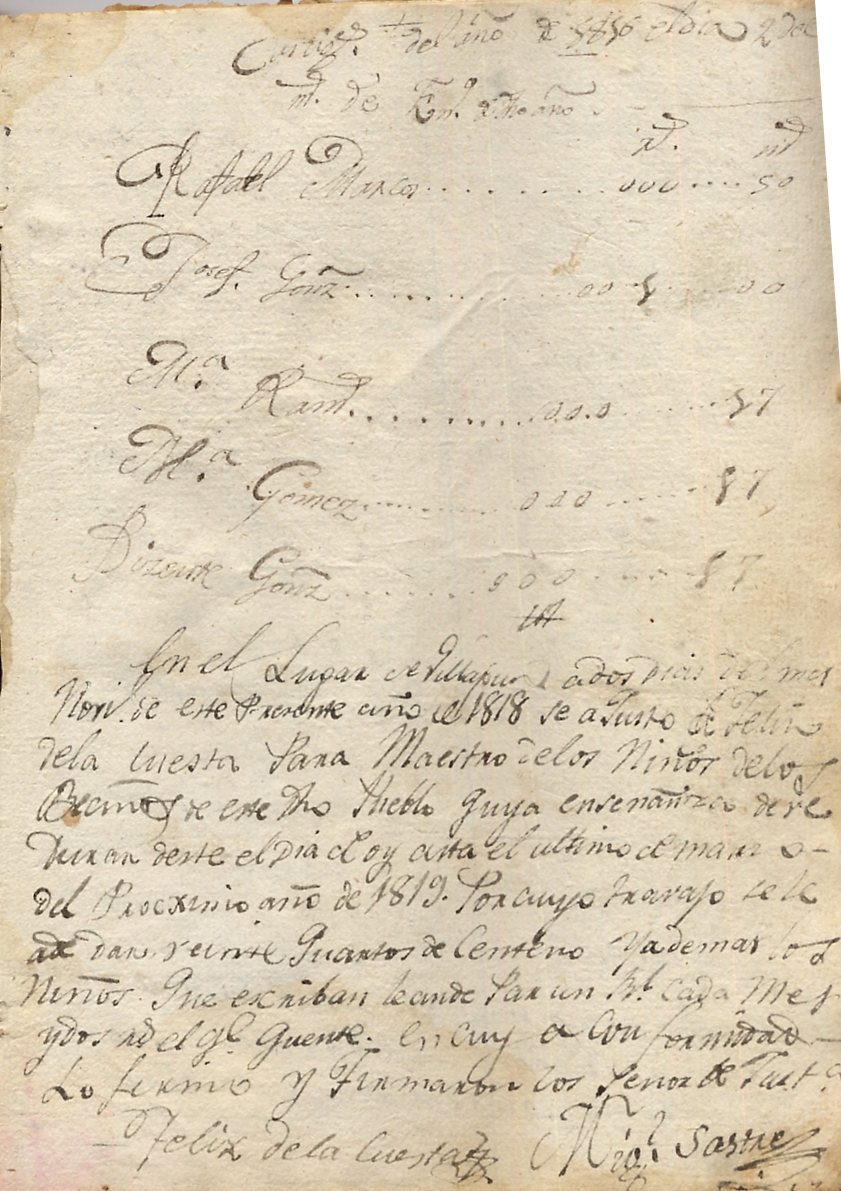 del año de el dia 2 de
m.^d de En.^o dho año
r.^s m.^s
Rafael Marcos ........ 000 .... 50
Josef. Gonz ........ 00 00
M.^a
Ram. ........ 000 .... 17
M.^a
Gomez ........ 000 .... 17
Bizente Gonz ........ 000 .... 17
En el Lugar de a dos dias del mes
Novi.^e de este Presente año de 1818 se a Justo
de la Cuesta Para Maestro de los Niños de los
de este Dho Pueblo Guya enseñanza de ve
Durar deste el Dia de oy asta el ultimo de marzo
del Procximo año de 1819. Por cuyo travajo se le
ade dar veinte Quartos de Centeno Yademas los
Niños Que escriban leande Par un R.^l cada Mes
ydos el q.^e Quente. en cuy a Conformidad
Lo firmo y Firmaron los Señor de Just.^a
Felix de la Cuesta Mig.^l Sastre